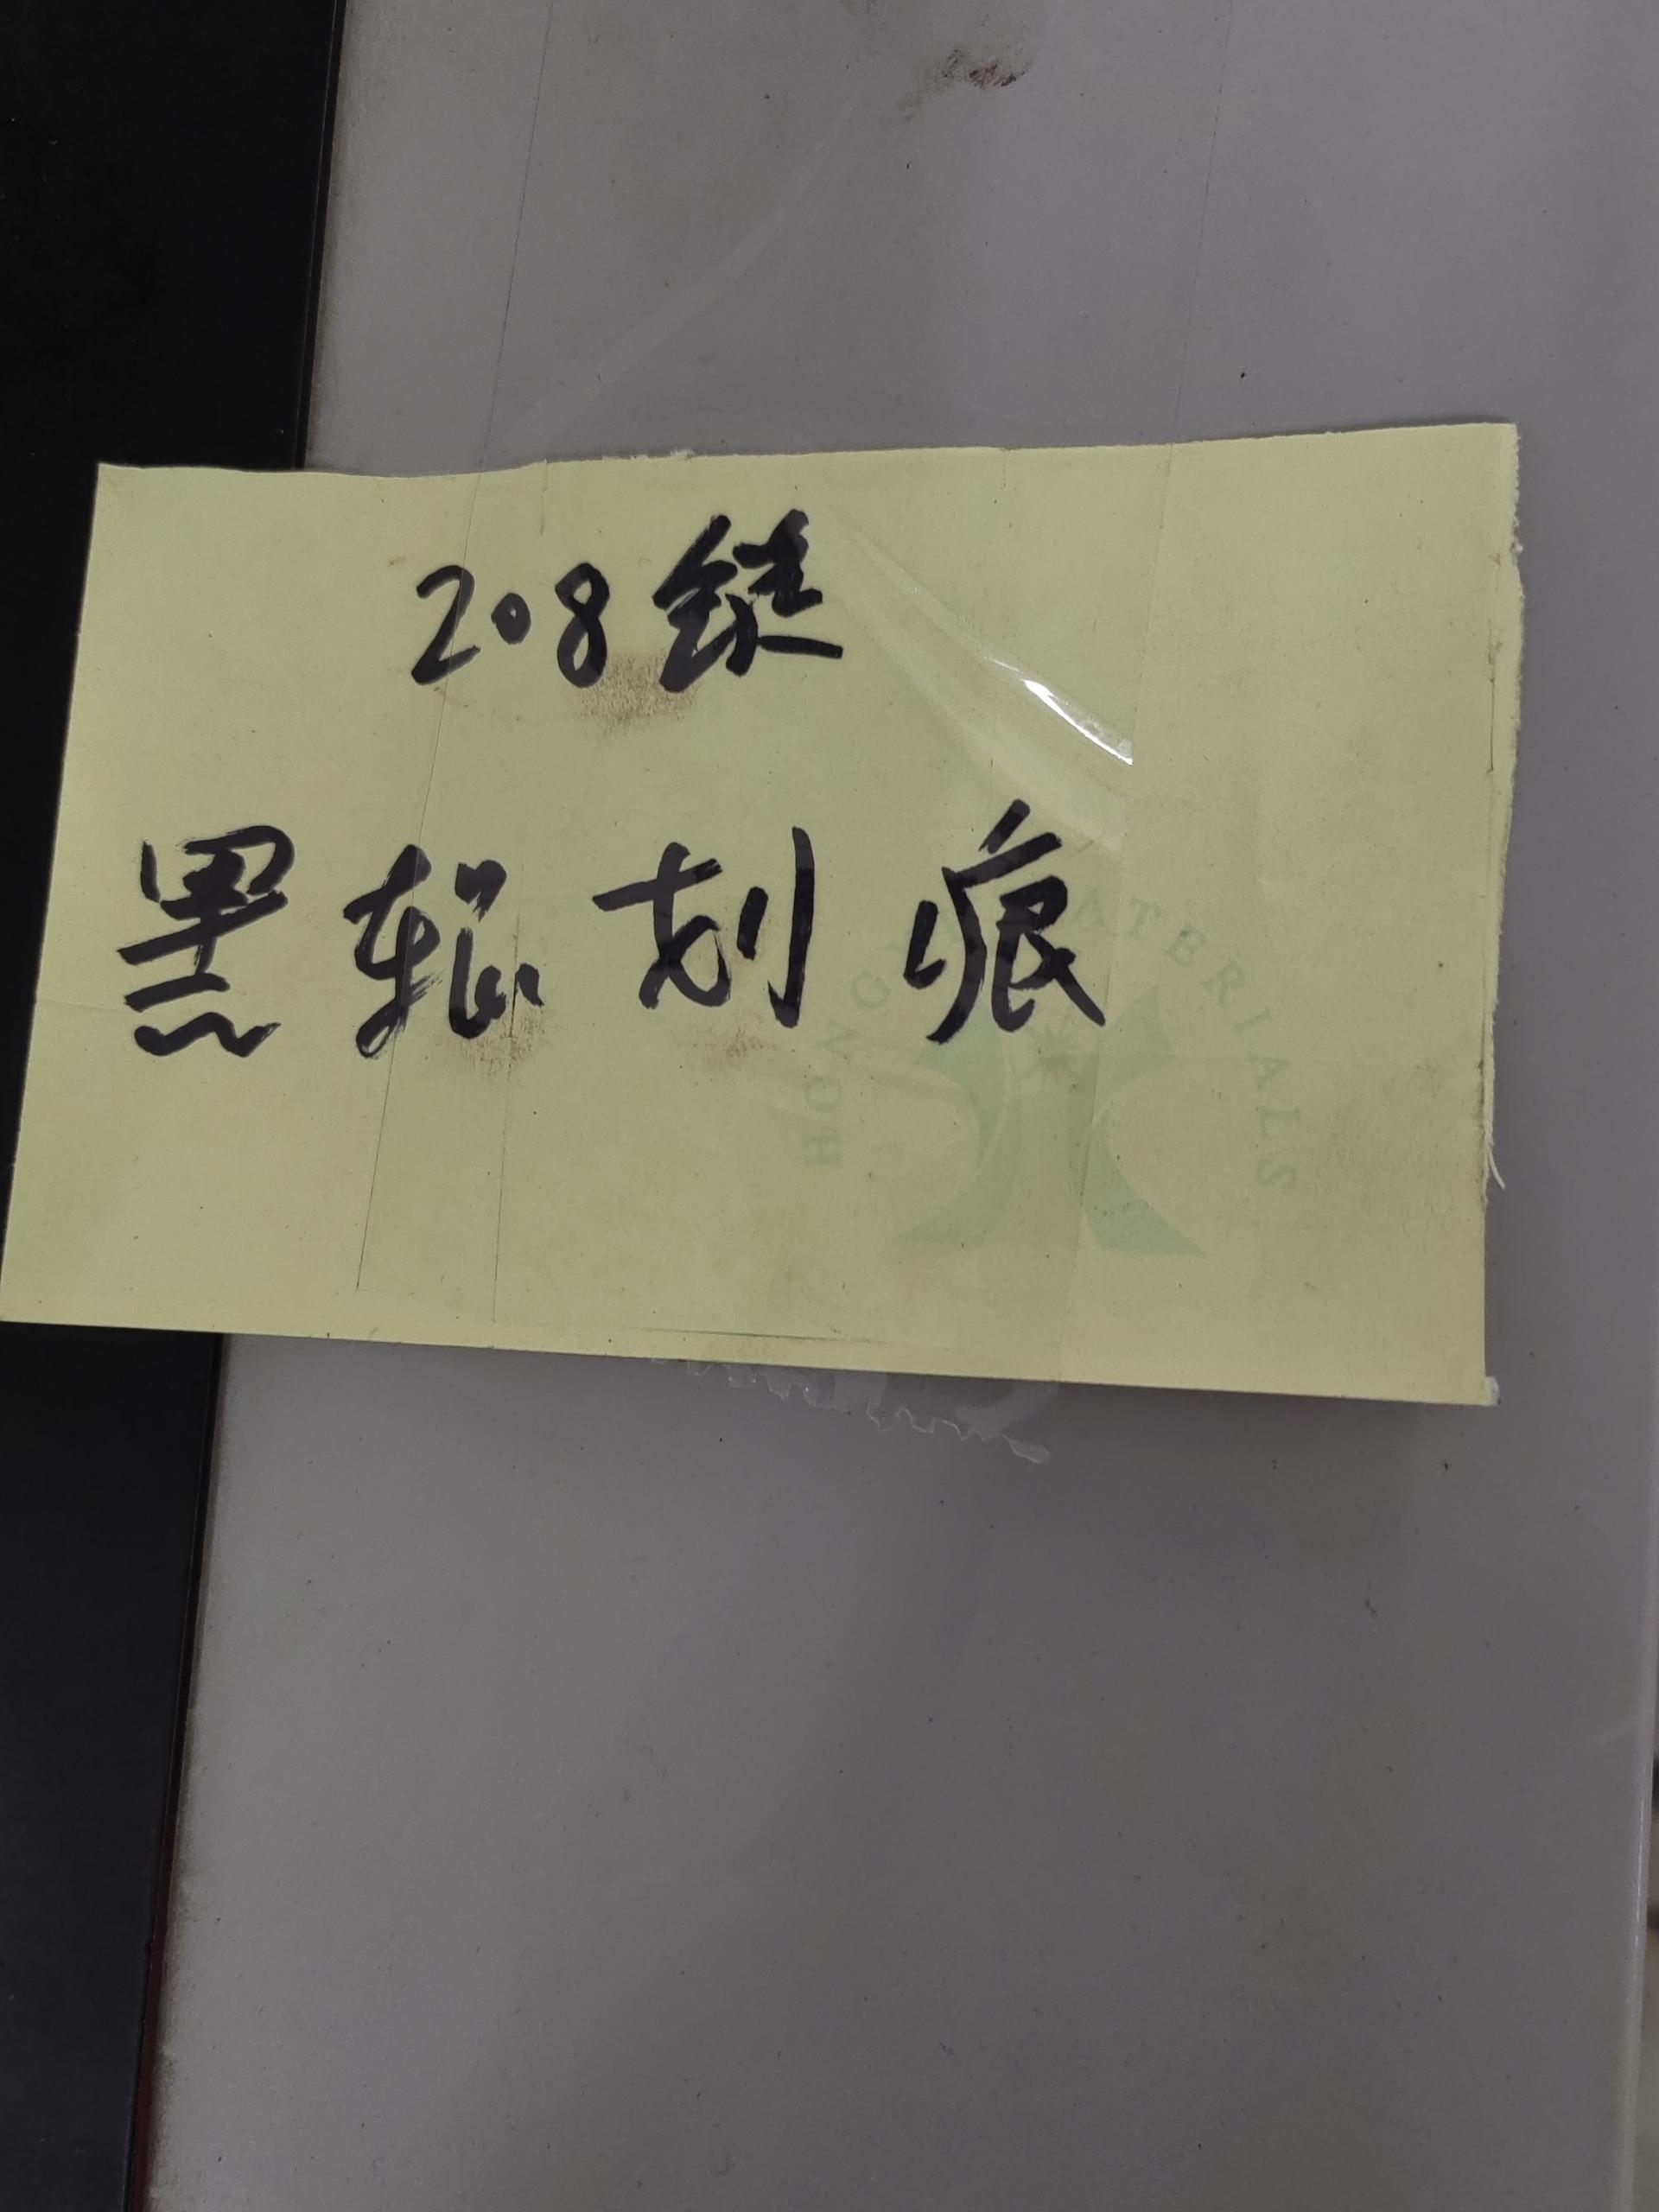 208锭
黑辊划痕
HONG MATERIALS